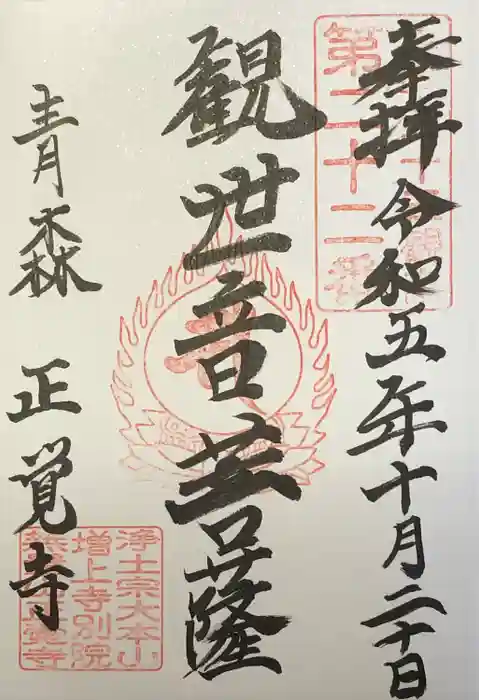 奉拝 令和五年十月二十日
第二十二
観世音菩薩
青森 正覚寺
浄土宗大本山
増上寺別院
正覚寺